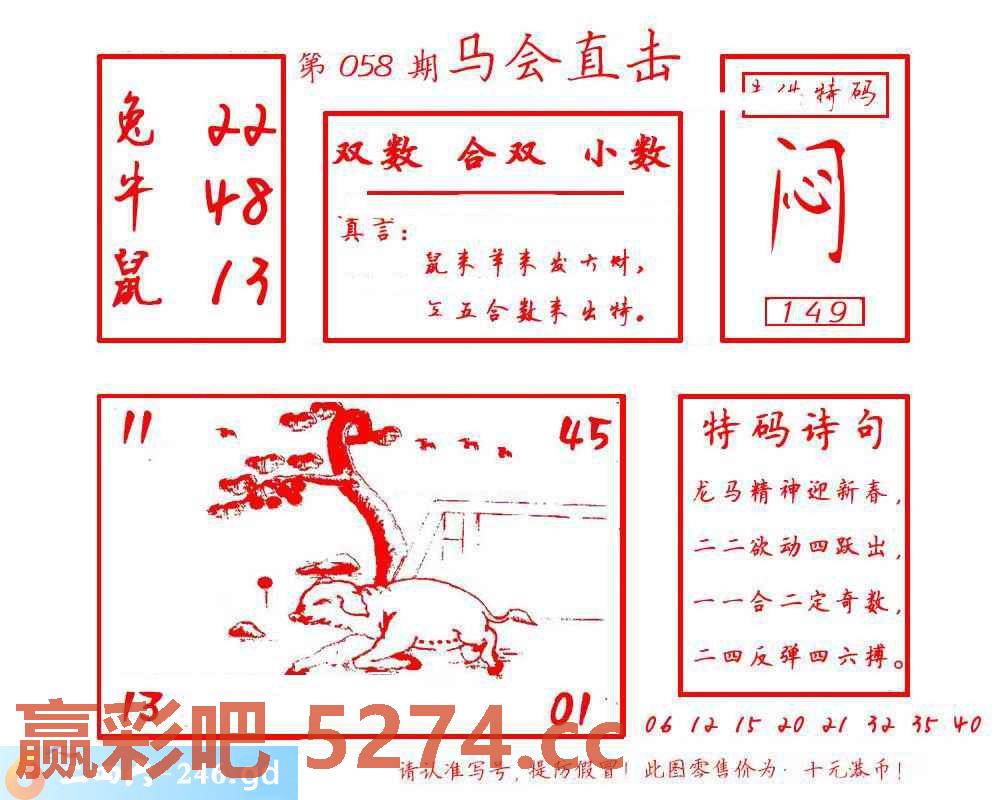 第 058 期 马会直击
兔 22
牛 48
鼠 13
双数 合双 小数
真言:
鼠来羊来发大财,
五合数来出特。
特码
闷
149
11 45
13 01
特码诗句
龙马精神迎新春,
二二欲动四跃出,
一一合二定奇数,
二四反弹四六搏。
06 12 15 20 21 32 35 40
赢彩吧 5274.cc
-246.gd
请认准写号,提防假冒!此图零售价为·十元港币!